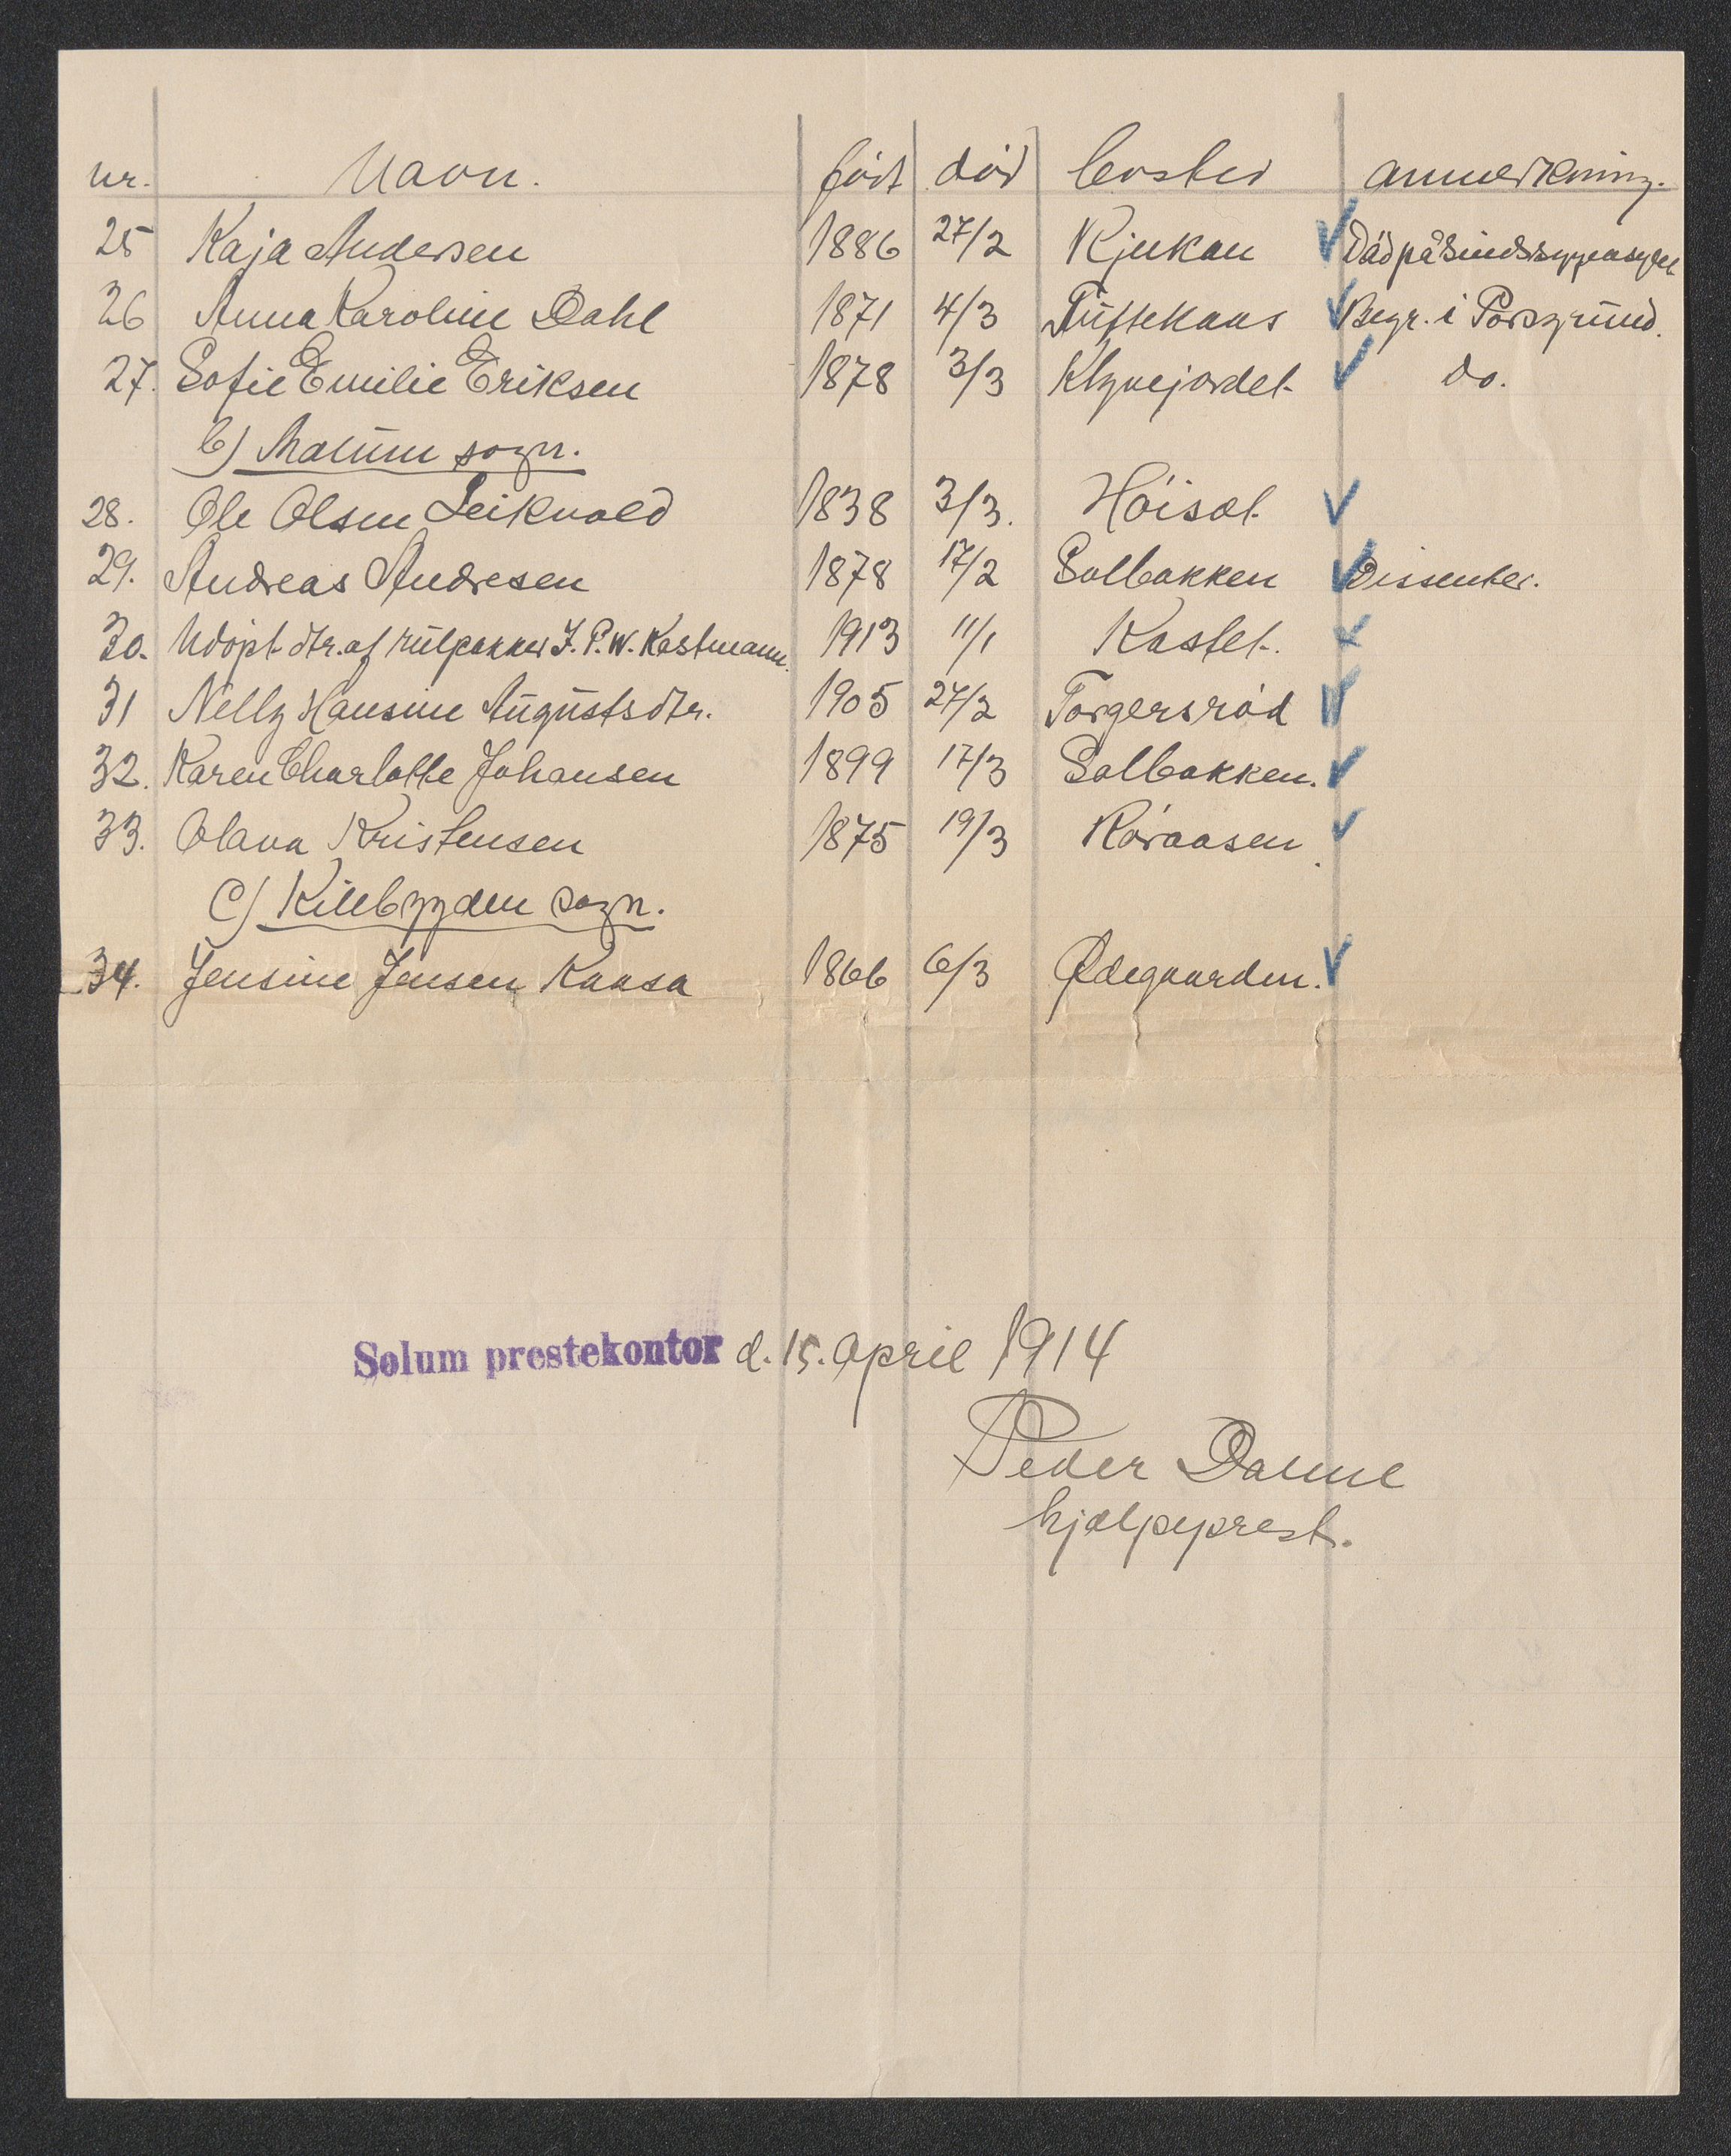 nr. Navn. født død bosted anmerkning.
25 Kaja Andersen 1886 27/2 Rjukan Død på Sindssygeasylet
26 Anna Karoline Dahl 1871 4/3 Tuftekaas Begr. i Porsgrund.
27. Sofie Emilie Eriksen 1878 3/3 Klyvejordet do.
b) Mælum sogn.
28. Ole Olsen Leikvold 1838 3/3. Høisæt
29. Andreas Andresen 1878 17/2 Solbakken Dissenter.
30. Udøpt dtr. af J. P. W. Kastmann. 1913 11/1 Kastet.
31 Nelly Hansine Augustsdtr. 1905 27/2 Torgersrød
32. Karen Charlotte Johansen 1899 17/3 Solbakken.
33. Olava Kristensen 1875 19/3 Røraasen
C) Kilebygden sogn.
34. Jensine Jensen Kaasa 1866 6/3 Ødegaarden.
Solum prestekontor d. 15. april 1914
Peder
hjælpeprest.